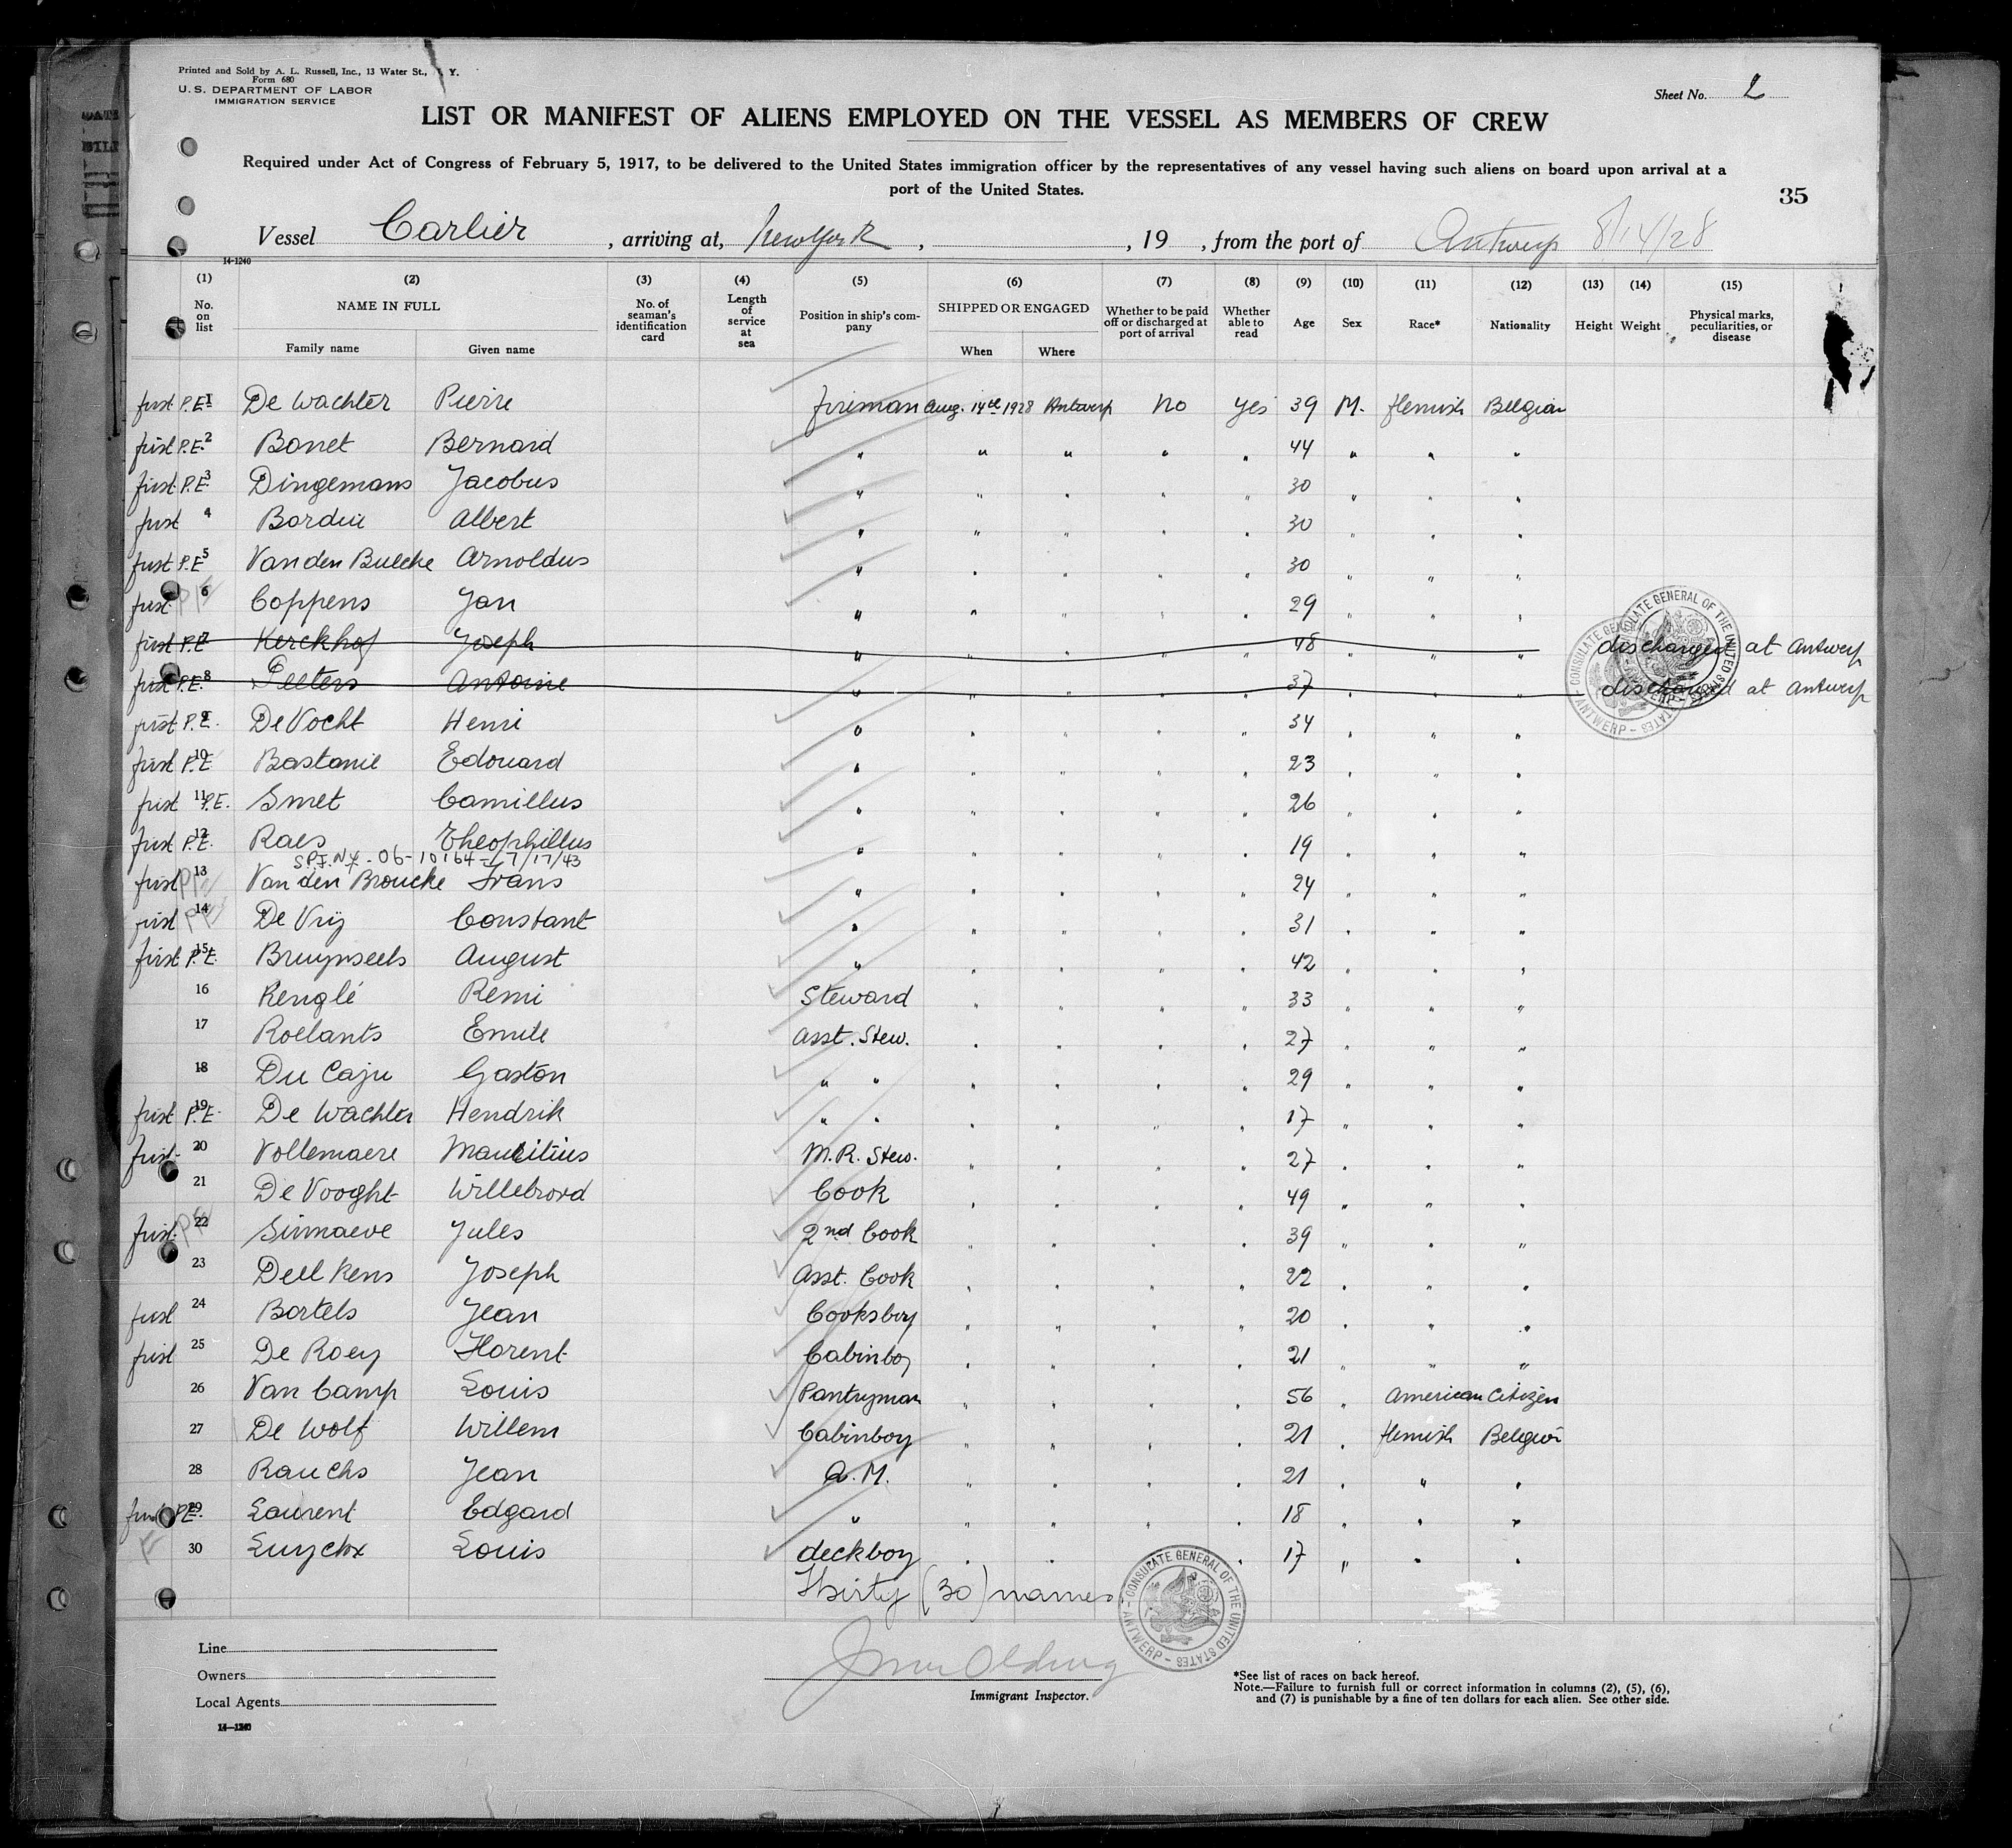 Printed and Sold by A. L. Russell, Inc., 13 Water St., Y.
Form 680
U. S. DEPARTMENT OF LABOR
IMMIGRATION SERVICE
Sheet No. 2
LIST OR MANIFEST OF ALIENS EMPLOYED ON THE VESSEL AS MEMBERS OF CREW
Required under Act of Congress of February 5, 1917, to be delivered to the United States immigration officer by the representatives of any vessel having such aliens on board upon arrival at a
port of the United States.
35
Vessel Carlier, arriving at, New York, , 19 , from the port of Antwerp 8/14/28
14-1240
(1) (2) (3) (4) (5) (6) (7) (8) (9) (10) (11) (12) (13) (14) (15)
No. on list NAME IN FULL Family name Given name No. of seaman's identification card Length of service at sea Position in ship's company SHIPPED OR ENGAGED When Where Whether to be paid off or discharged at port of arrival Whether able to read Age Sex Race* Nationality Height Weight Physical marks, peculiarities, or disease
first P.E. 1 De Wachter Pierre fireman Aug. 14th 1928 Antwerp No Yes 39 M. flemish Belgian
first P.E. 2 Bonet Bernard " " " " " 44 " " "
first P.E. 3 Dingemans Jacobus " " " " " 30 " " "
first 4 Bordin Albert " " " " " 30 " " "
first P.E. 5 Van den Bulcke Arnoldus " " " " " 30 " " "
first P/E 6 Coppens Jan " " " " " 29 " " "
first P.E. 7 Kerckhof Joseph " " " " " 48 " " " discharged at Antwerp
first P.E. 8 Peeters Antoine " " " " " 37 " " " discharged at Antwerp
first P.E. 9 De Vocht Henri " " " " " 34 " " "
first P.E. 10 Bastanie Edouard " " " " " 23 " " "
first P.E. 11 Smet Camillus " " " " " 26 " " "
first P.E. 12 Raes Theophillus " " " " " 19 " " "
06-10164 7/17/43
first P/E 13 Van den Broucke Frans " " " " " 24 " " "
first P/E 14 De Vrij Constant " " " " " 31 " " "
first P.E. 15 Bruynseels August " " " " " 42 " " "
16 Renglé Remi Steward " " " " 33 " " "
17 Roelants Emile Asst. Stew. " " " " 27 " " "
18 Du Caju Gaston " " " " " " 29 " " "
first P.E. 19 De Wachter Hendrik " " " " " " 17 " " "
first 20 Vollemaere Mauritius M.R. Stew. " " " " 27 " " "
21 De Vooght Willebrord Cook " " " " 49 " " "
first P/E 22 Sinnaeve Jules 2nd Cook " " " " 39 " " "
23 Deelkens Joseph Asst. Cook " " " " 22 " " "
first 24 Bartels Jean Cooksboy " " " " 20 " " "
first 25 De Roey Florent Cabinboy " " " " 21 " " "
26 Van Camp Louis Pantryman " " " " 56 " American Citizen
27 De Wolf Willem Cabinboy " " " " 21 " flemish Belgian
28 Rauchs Jean A.M. " " " " 21 " " "
first P.E. 29 Laurent Edgard " " " " " 18 " " "
F 30 Luyckx Louis deckboy " " " 17 " " "
Thirty (30) names
CONSULATE GENERAL OF THE UNITED STATES - ANTWERP -
Line
Owners
Local Agents
14-1240
Immigrant Inspector.
*See list of races on back hereof.
Note.—Failure to furnish full or correct information in columns (2), (5), (6),
and (7) is punishable by a fine of ten dollars for each alien. See other side.